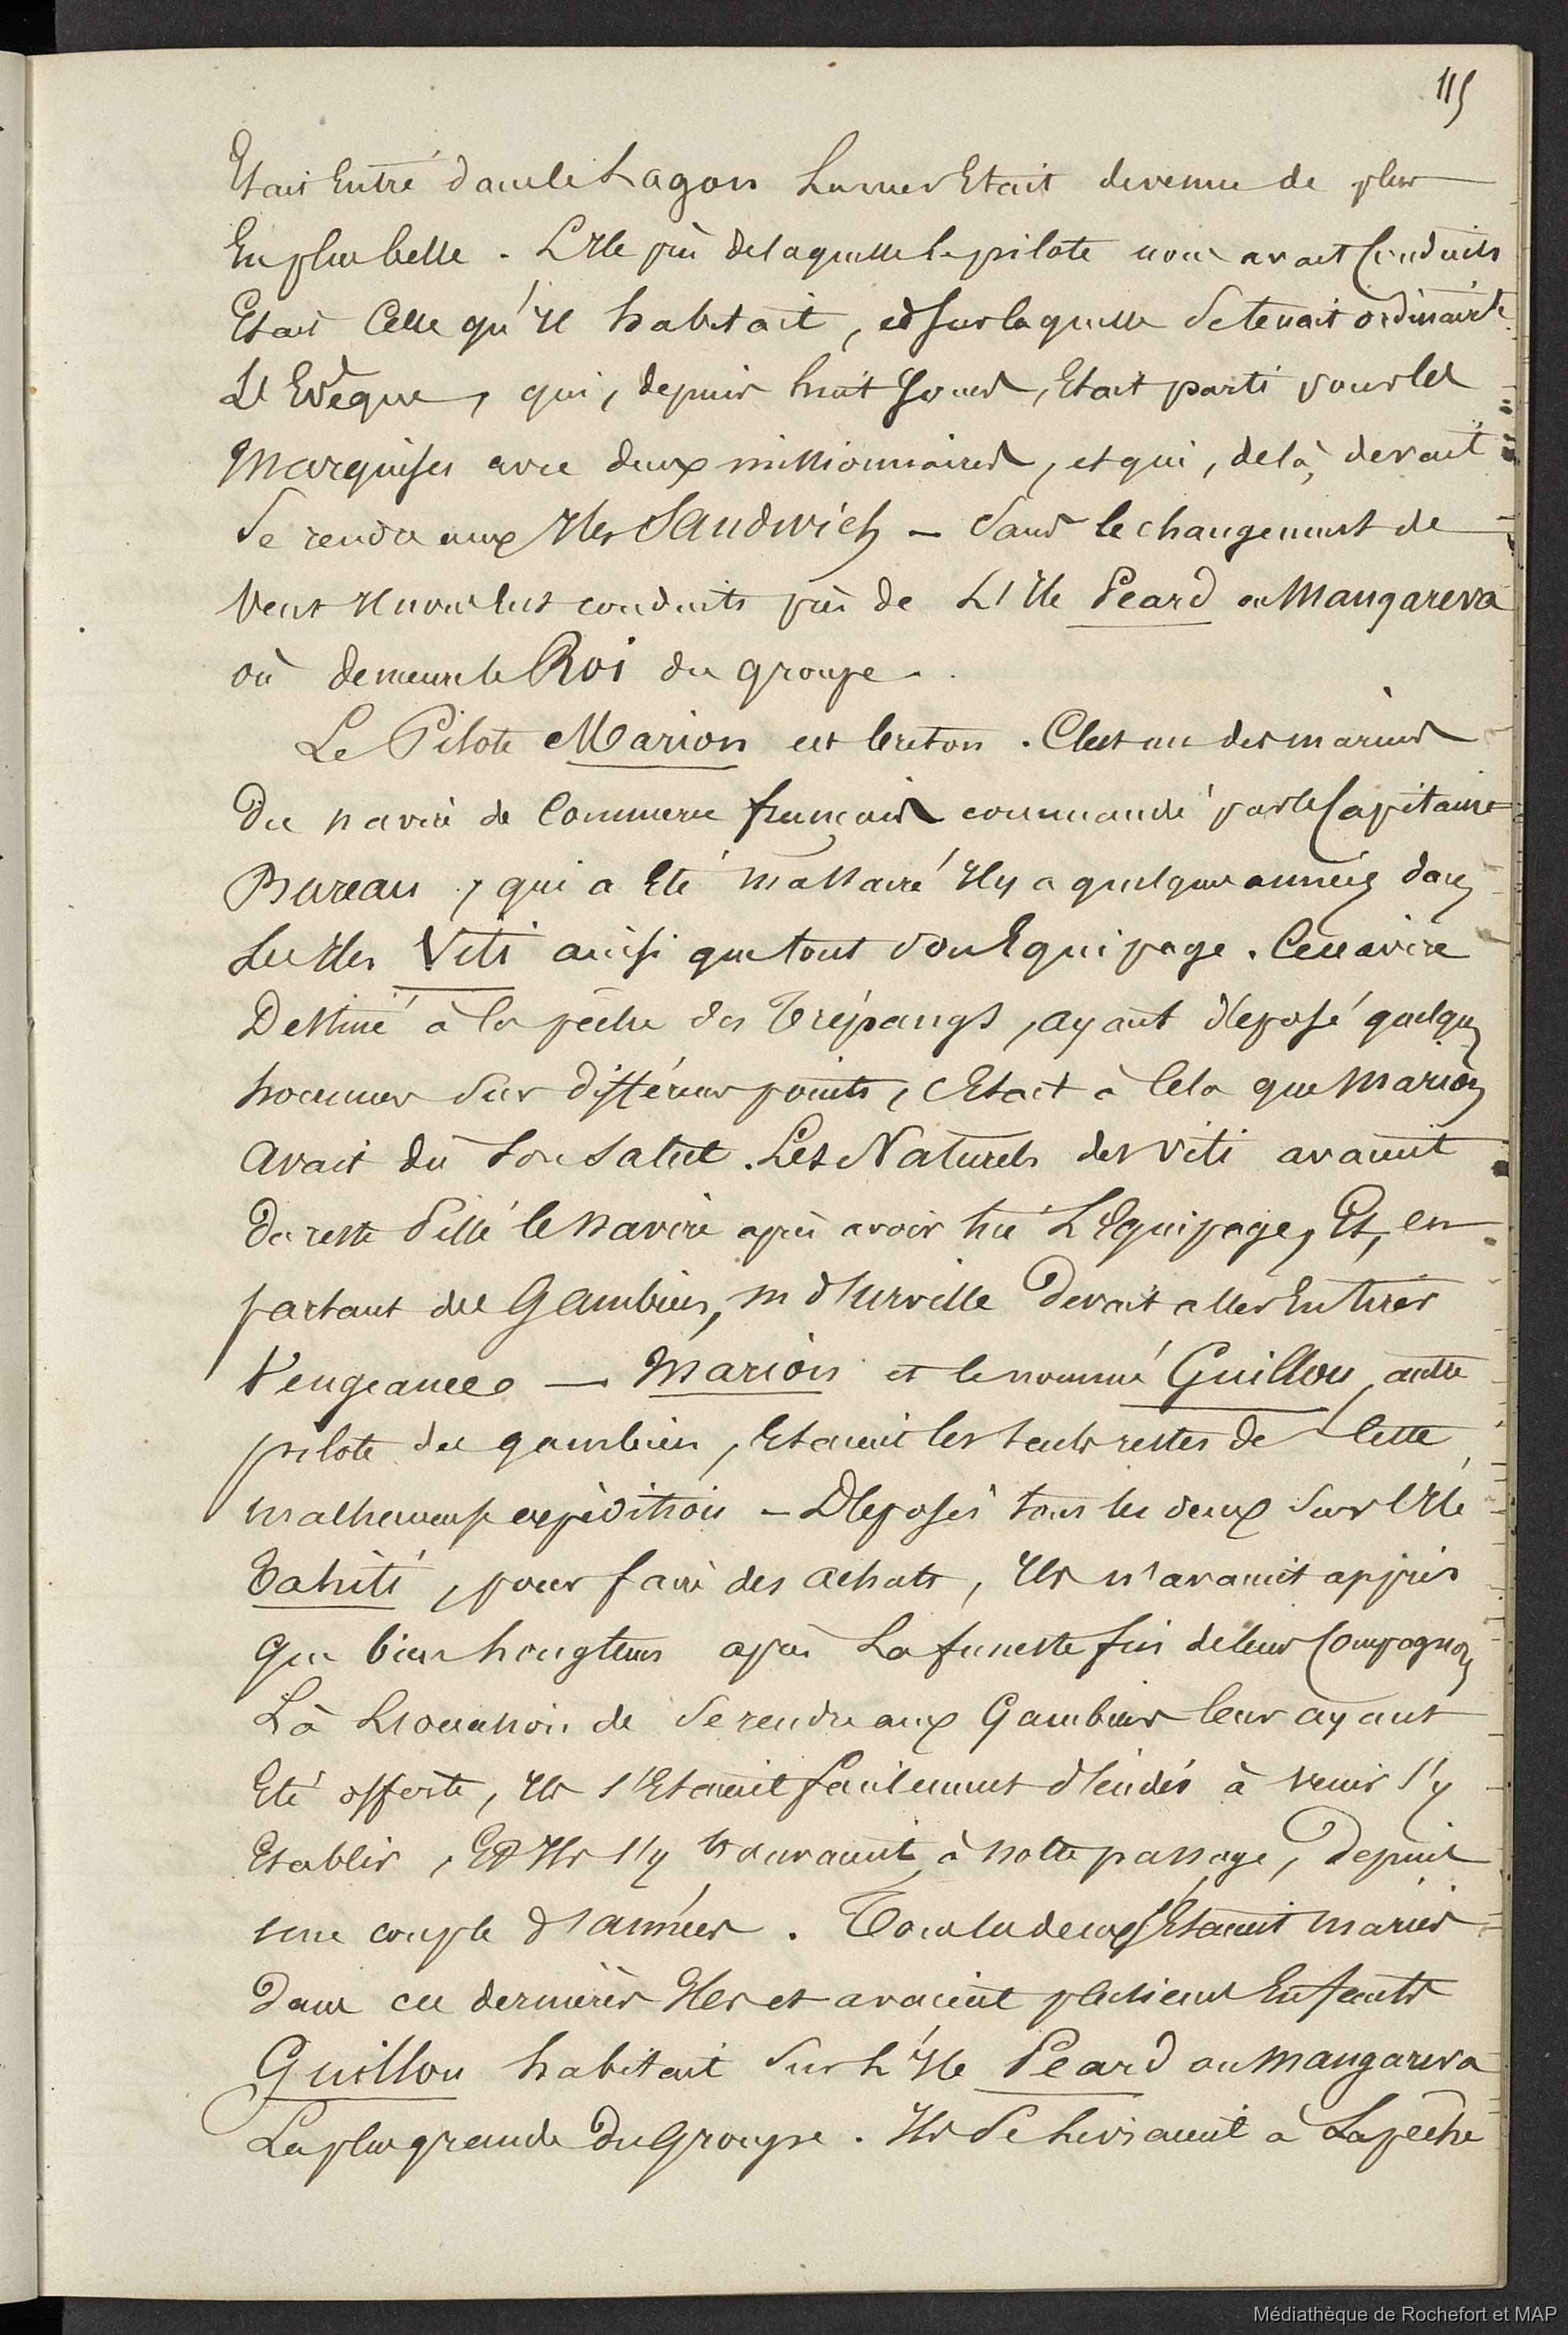 115
Etait Entré dans le Lagon La mer Etait devenue de plus
En plus belle. L'Ile près de laquelle le pilote nous avait Conduits
Etait Celle qu'Il habitait, et sur laquelle se tenait ordinairt
L'Evêque, qui, depuis huit Jours, Etait parti pour les
Marquises avec deux missionnaires, et qui, de là, devait
Se rendre aux Iles Sandwich — Sans le changement de
Vent Il nous eut conduits près de L'Ile Peard ou Mangareva
où demeure le Roi du groupe.
Le Pilote Marion est breton. C'est un des marins
Du navire de Commerce français commandé par le Capitaine
Bureau, qui a Eté massacré Il y a quelques années dans
Les Iles Viti ainsi que tout son Equipage. Ce navire
Destiné à la pêche des Trépangs, ayant déposé quelques
hommes sur différens points, C'Etait à Cela que Marion
Avait dû son salut. Les Naturels des Viti avaient
Du reste Pillé le navire après avoir tué L'Equipage, Et, en
partant des Gambiers, m d'Urville Devait aller En tirer
Vengeance — Marion et le nommé Guillou, autre
pilote des gambiers, Etaient les seuls restes de Cette
malheureuse expédition — Déposés tous les deux sur l'Ile
Tahiti, pour faire des achats, Ils n'avaient appris
Que bien Longtems après La funeste fin de leurs Compagnons
Là L'occasion de Se rendre aux Gambiers leur ayant
Eté offerte, Ils s'Etaient facilement décidés à venir s'y
Etablir, Et Ils s'y trouvaient, à notre passage, Depuis
une couple d'années. Tous les deux s'Etaient mariés
Dans ces dernières Iles et avaient plusieurs Enfants
Guillou habitait sur L'Ile Peard ou Mangareva
La plus grande Du Groupe. Ils Se Livraient à La pêche
Médiathèque de Rochefort et MAP